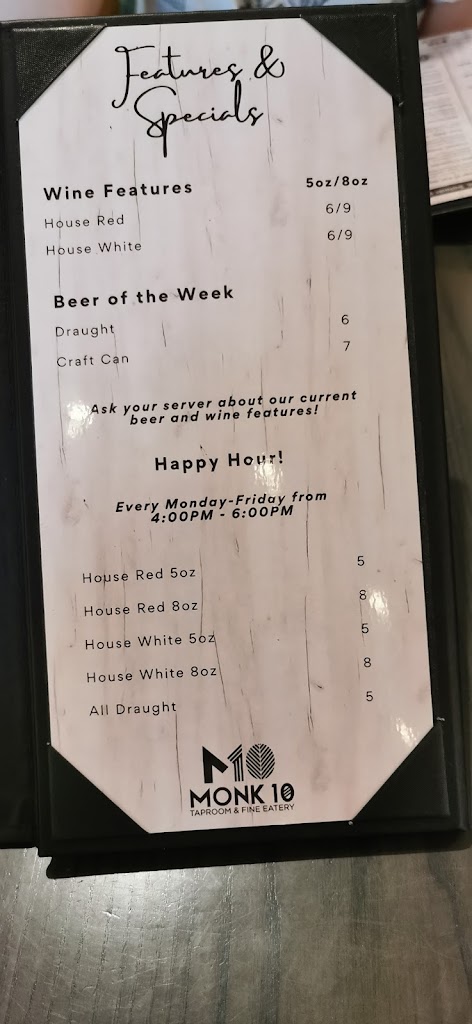 Features &
Specials
Wine Features 5oz/8oz
House Red 6/9
House White 6/9
Beer of the Week
Draught 6
Craft Can 7
Ask your server about our current
beer and wine features!
Happy Hour!
Every Monday-Friday from
4:00PM - 6:00PM
House Red 5oz 5
House Red 8oz 8
House White 5oz 5
House White 8oz 8
All Draught 5
M10
MONK 10
TAPROOM & FINE EATERY